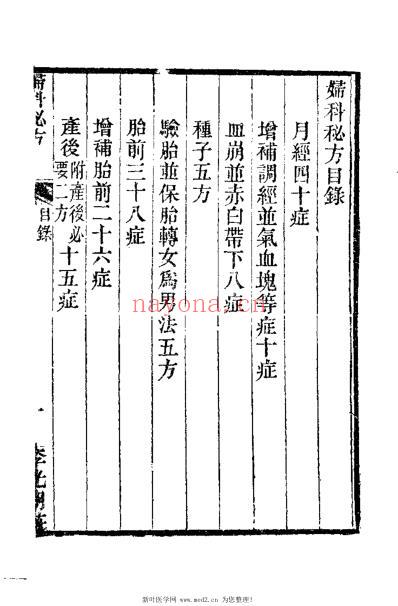 婦科秘方目錄
月經四十症
增補調經並氣血塊等症十症
血崩並赤白帶下八症
種子五方
驗胎並保胎轉女爲男法五方
胎前三十八症
增補胎前二十六症
產後附產後必要二方十五症
婦科秘方
目錄
一
nayona.cn
新叶医学网 www.med2.cn 为您整理!